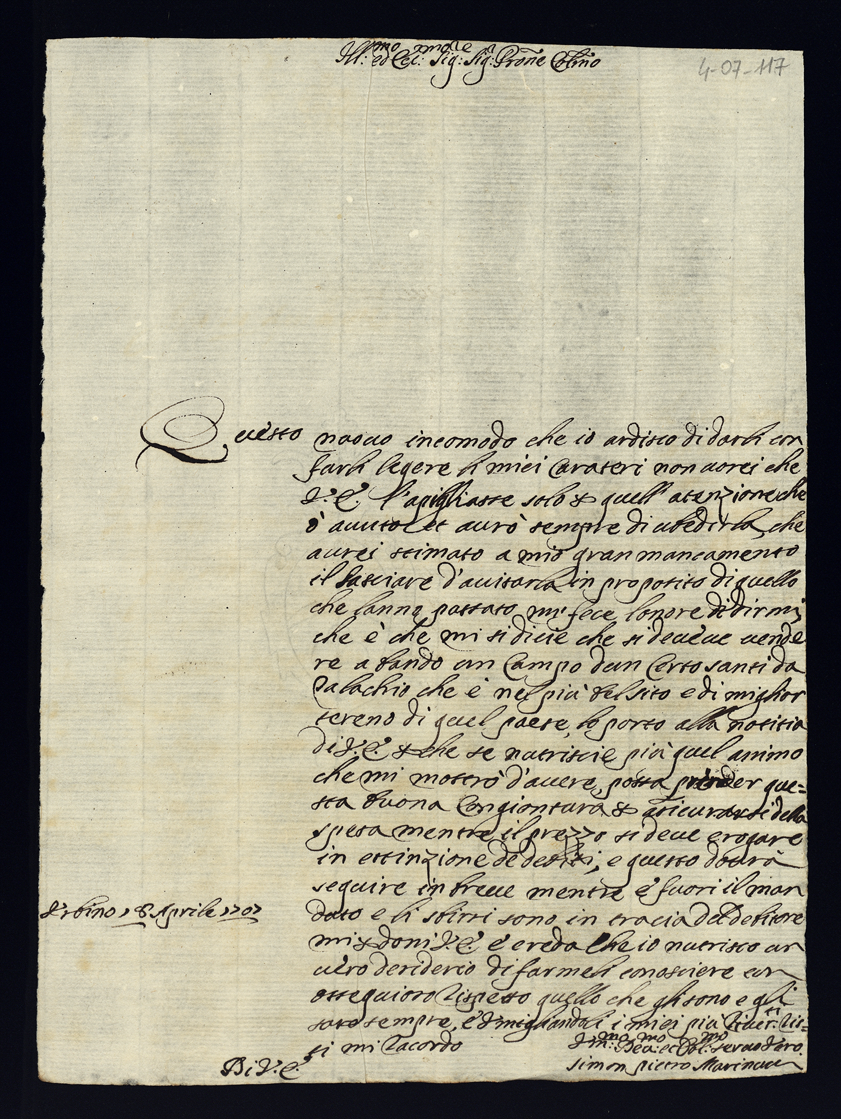 Ill:mo ed Ecc: Sig: Sig: Prone Colmo
4-07-117
Questo nuouo incomodo che io ardisco di darli con
farli legere li miei Carateri non uorei che
V.E. l'apigliasse solo & quell'atenzione che
ò auuto et aurò sempre di ubedirla, che
aurei stimato a mio gran mancamento
il lasciare d'auisarla in proposito di quello
che lanno passato mi fece lonore di dirmi,
che è che mi si dicie che si deueue uende
re a bando un Campo dun Certo santi da
Palachio che è nel più bel sito e di miglior
tereno di quel paese, lo porto alla notitia
di V.E. & che se nutriscie più quel animo
che mi mostrò d'auere, possa prender que=
sta buona Congiontura & asicurarsi della
spesa mentre il prezzo si deue erogare
in estinzione de debiti, e questo dourà
seguire in breue mentre è fuori il man
dato e li sbirri sono in tracia del debitore
mi &doni V.E. e creda che io nutrisco un
uero desiderio di farmeli conosciere con
ossequioso rispetto quello che gli sono e gli
sarò sempre, e &migliandoli i miei più riuer:ti ris=
ti mi racordo
Vrbino 28 Aprile 1707
Di V.E.
Vm:mo Deu:mo et Obl:mo seruo d'uero
Simon pietro Marinucci